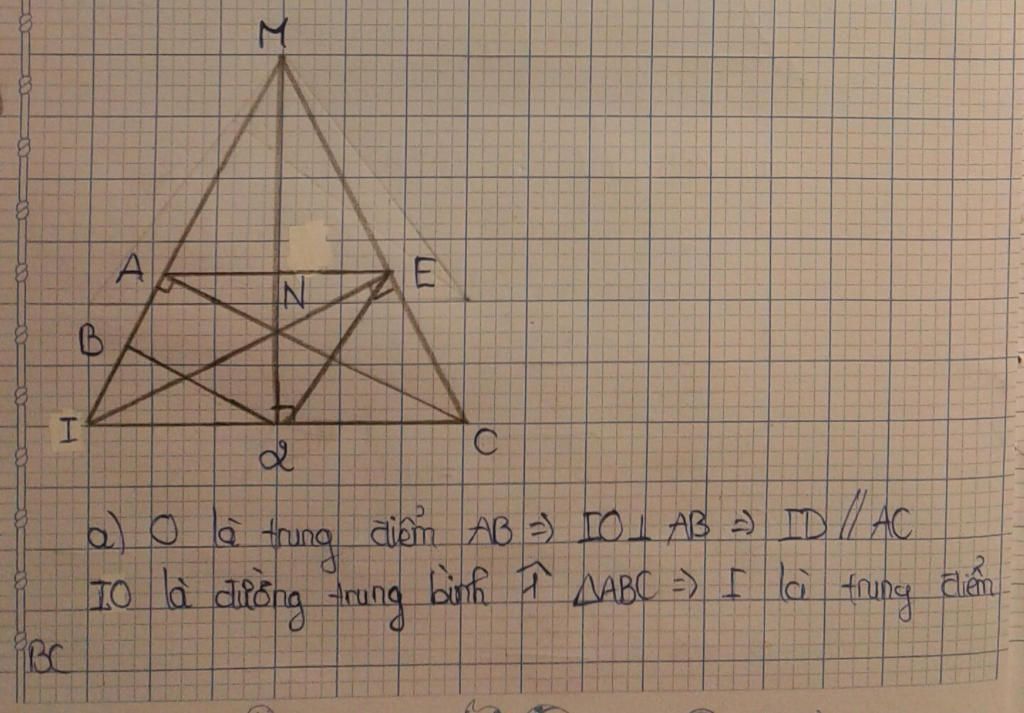 M
A
E
N
B
I
Q
C
a) O là trung điểm AB => IO⊥ AB => ID // AC
IO là đường trung bình ΔABC => I là trung điểm
BC